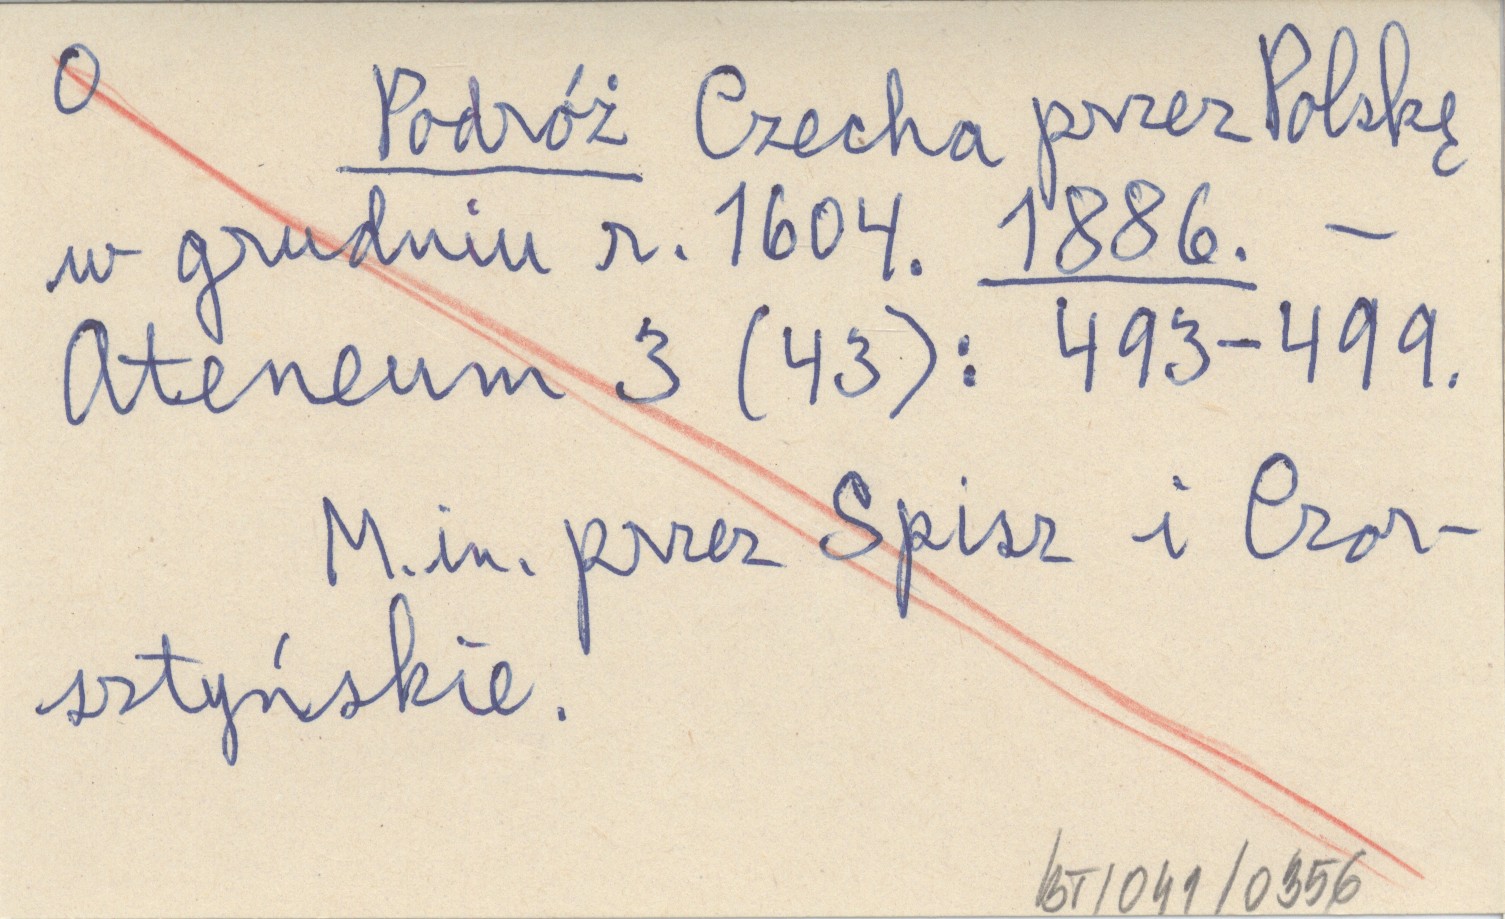 O
Podróż Czecha przez Polskę
w grudniu r. 1604. 1886. –
Ateneum 3 (43): 493–499.
M.in. przez Spisz i Czor-
sztyńskie.
BT/041/0356